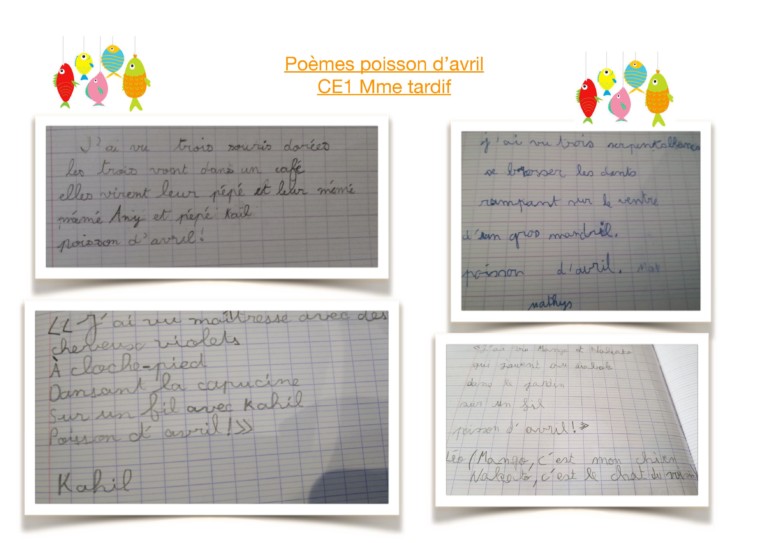 Poèmes poisson d'avril
CE1 Mme tardif
J'ai vu trois souris dorées
les trois vont dans un café
elles virent leur pépé et leur mémé
mémé Any et pépé
poisson d'avril!
j'ai vu trois
se brosser les dents
rampant sur le ventre
gros mandril.
poisson d'avril.
mathys
«J'ai vu maîtresse avec des
cheveux violets
À cloche-pied
Dansant la capucine
Sur un fil avec Kahil
Poisson d'avril!»
Kahil
J'ai vu Mango et
qui
dans le jardin
sur un fil
poisson d'avril!»
Léo (Mango, c'est mon chien
c'est le chat du